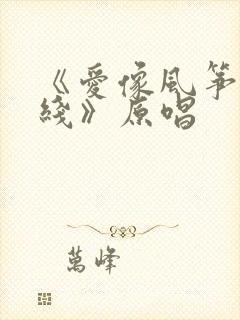 《愛像風筝
綫》原唱
萬峰